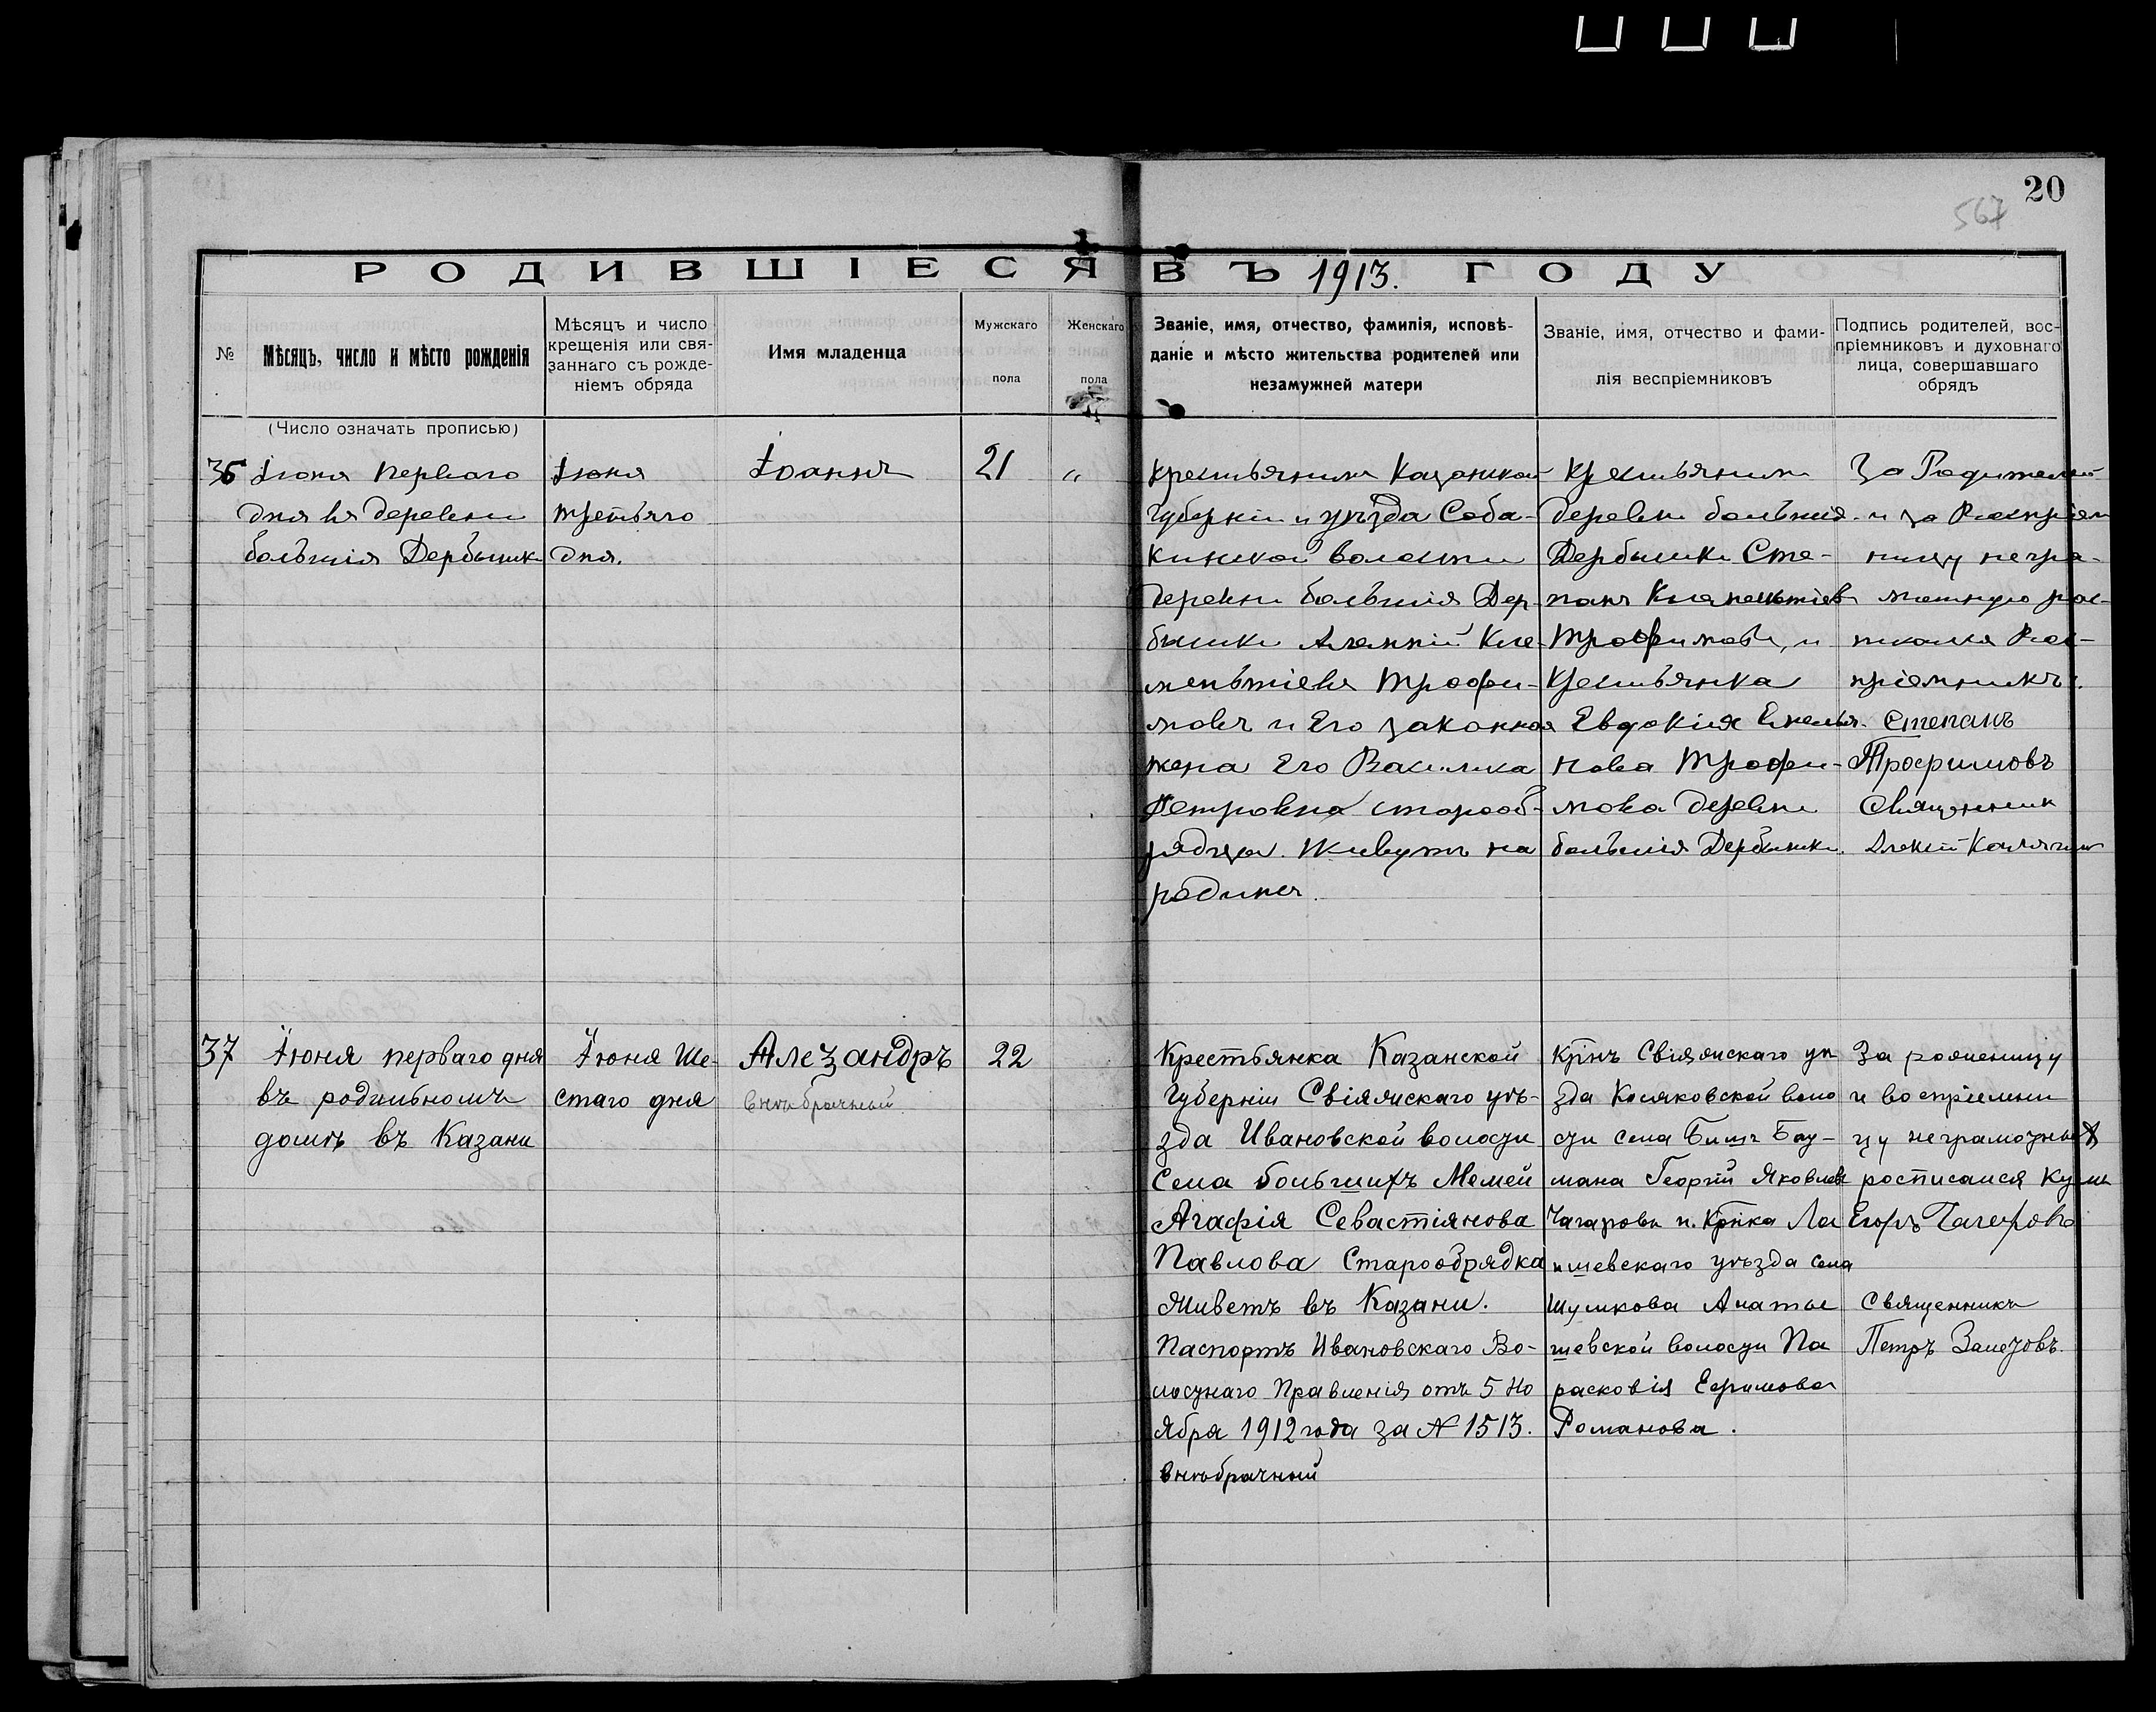 20
567
РОДИВШІЕСЯ ВЪ 1913. ГОДУ
№
Мѣсяцъ, число и мѣсто рожденія
Мѣсяцъ и число
крещенія или свя-
заннаго съ рожде-
ніемъ обряда
Имя младенца
Мужскаго
пола
Женскаго
пола
Званіе, имя, отчество, фамилія, исповѣ-
даніе и мѣсто жительства родителей или
незамужней матери
Званіе, имя, отчество и фами-
лія веспріемниковъ
Подпись родителей, вос-
пріемниковъ и духовнаго
лица, совершавшаго
обрядъ
(Число означать прописью)
36
Іюня перваго
дня въ деревни
большія Дербышки
Іюня
третьяго
дня.
Іоаннъ
21
„
крестьянинъ Казанской
Губерніи и уѣзда Соба-
кинской волости
деревни большія Дер-
бышки Клe-
ментіевъ Трофи-
мовъ и Его законная
жена Его Василиса
Петровна старооб-
рядцы. Живутъ на
родинѣ.
Крестьянинъ
деревни большія
Дербышки Сте-
панъ Клементіевъ
Трофимовъ, и
Крестьянка
Евдокія Емелья-
нова Трофи-
мова деревни
большія Дербышки.
За Родителей
и за Воспріем
ницу негра-
мотную рос-
писался Вос-
пріемникъ.
Степанъ
Трофимовъ
Священникъ
Алексій Калягинъ
37
Іюня перваго дня
въ родильномъ
домѣ въ Казани
Іюня Ше-
стаго дня
Алезандръ
внѣбрачный
22
Крестьянка Казанской
Губерніи Свіяжскаго уѣ-
зда Ивановской волости
Села большихъ Мемей
Агафія Севастіянова
Павлова Старообрядка
Живетъ въ Казани.
Паспортъ Ивановскаго Во-
лостнаго Правленія отъ 5 Но
ября 1912 года за № 1513.
внѣбрачный
Кр̃інъ Свіяжскаго уѣ
зда Косяковской воло
сти села Бишъ Бат-
мана Георгій Яковлевъ
Чагаровъ и. Крн̃ка Ла
ишевскаго уѣзда села
Шумкова Анаты
шевской волости Па
расковія Ефимова
Романова.
За роженицу
и воспріемни
цу неграмотныхъ
росписался кумъ
Егоръ Чагаровъ
Священникъ
Петръ Залетовъ.